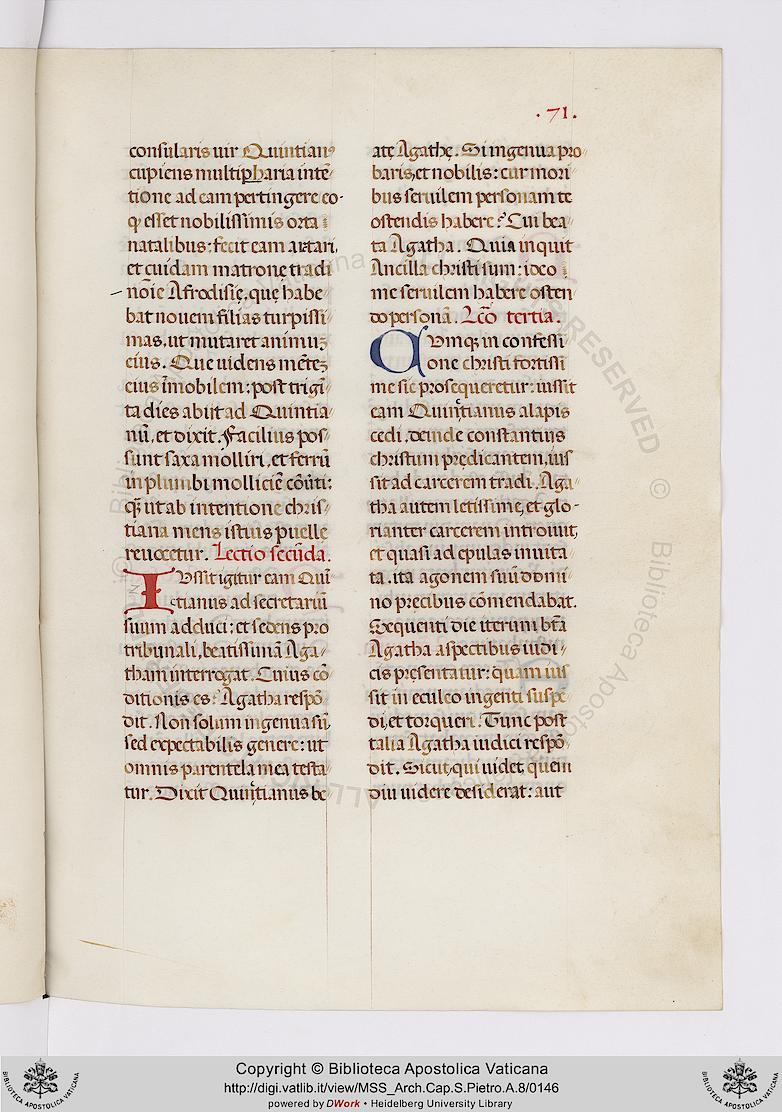 .71.
consularis uir Quintianꝰ
cupiens multipharia intē
tione ad eam pertingere eo-
qꝫ esset nobilissimis orta
natalibus: fecit eam artari,
et cuidam matronę tradi
nōie Afrodisię, quę habe
bat nouem filias turpissi
mas, ut mutaret animuꝫ
eius. Que uidens mēteꝫ
eius īmobilem: post trigī
ta dies abiit ad Quintia
nū, et dixit. Facilius pos
sunt saxa molliri, et ferrū
in plumbi molliciē cōuti:
qꝫ ut ab intentione chris
tiana mens istius puelle
reuocetur. Lectio secūda.
IUssit igitur eam Qui
ctianus ad secretariū
suum adduci: et sedens pro
tribunali, beatissimā Aga
tham interrogat. Cuius cō
ditionis es? Agatha respō
dit. Non solum ingenua sū,
sed expectabilis genere: ut
omnis parentela mea testa
tur. Dixit Quinctianus be
atę Agathę. Si ingenua pro
baris, et nobilis: cur mori
bus seruilem personam te
ostendis habere? Cui bea
ta Agatha. Quia inquit
Ancilla christi sum: ideo
me seruilem habere osten
do personā. Lc̄o tertia.
CUmqꝫ in confessi
one christi fortissi
me sic prosequeretur: iussit
eam Quinctianus alapis
cedi, deinde constantius
christum predicantem, ius
sit ad carcerem tradi. Aga
tha autem letissime, et glo-
rianter carcerem introiuit,
et quasi ad epulas inuita
ta, ita agonem suū domi
no precibus cōmendabat.
Sequenti die iterum bt̄a
Agatha aspectibus iudi
cis presentatur: quam ius
sit in eculeo ingenti suspē
di, et torqueri. Tunc post
talia Agatha iudici respō
dit. Sicut, qui uidet, quem
diu uidere desiderat: aut
Copyright © Biblioteca Apostolica Vaticana
http://digi.vatlib.it/view/MSS_Arch.Cap.S.Pietro.A.8/0146
powered by DWork • Heidelberg University Library